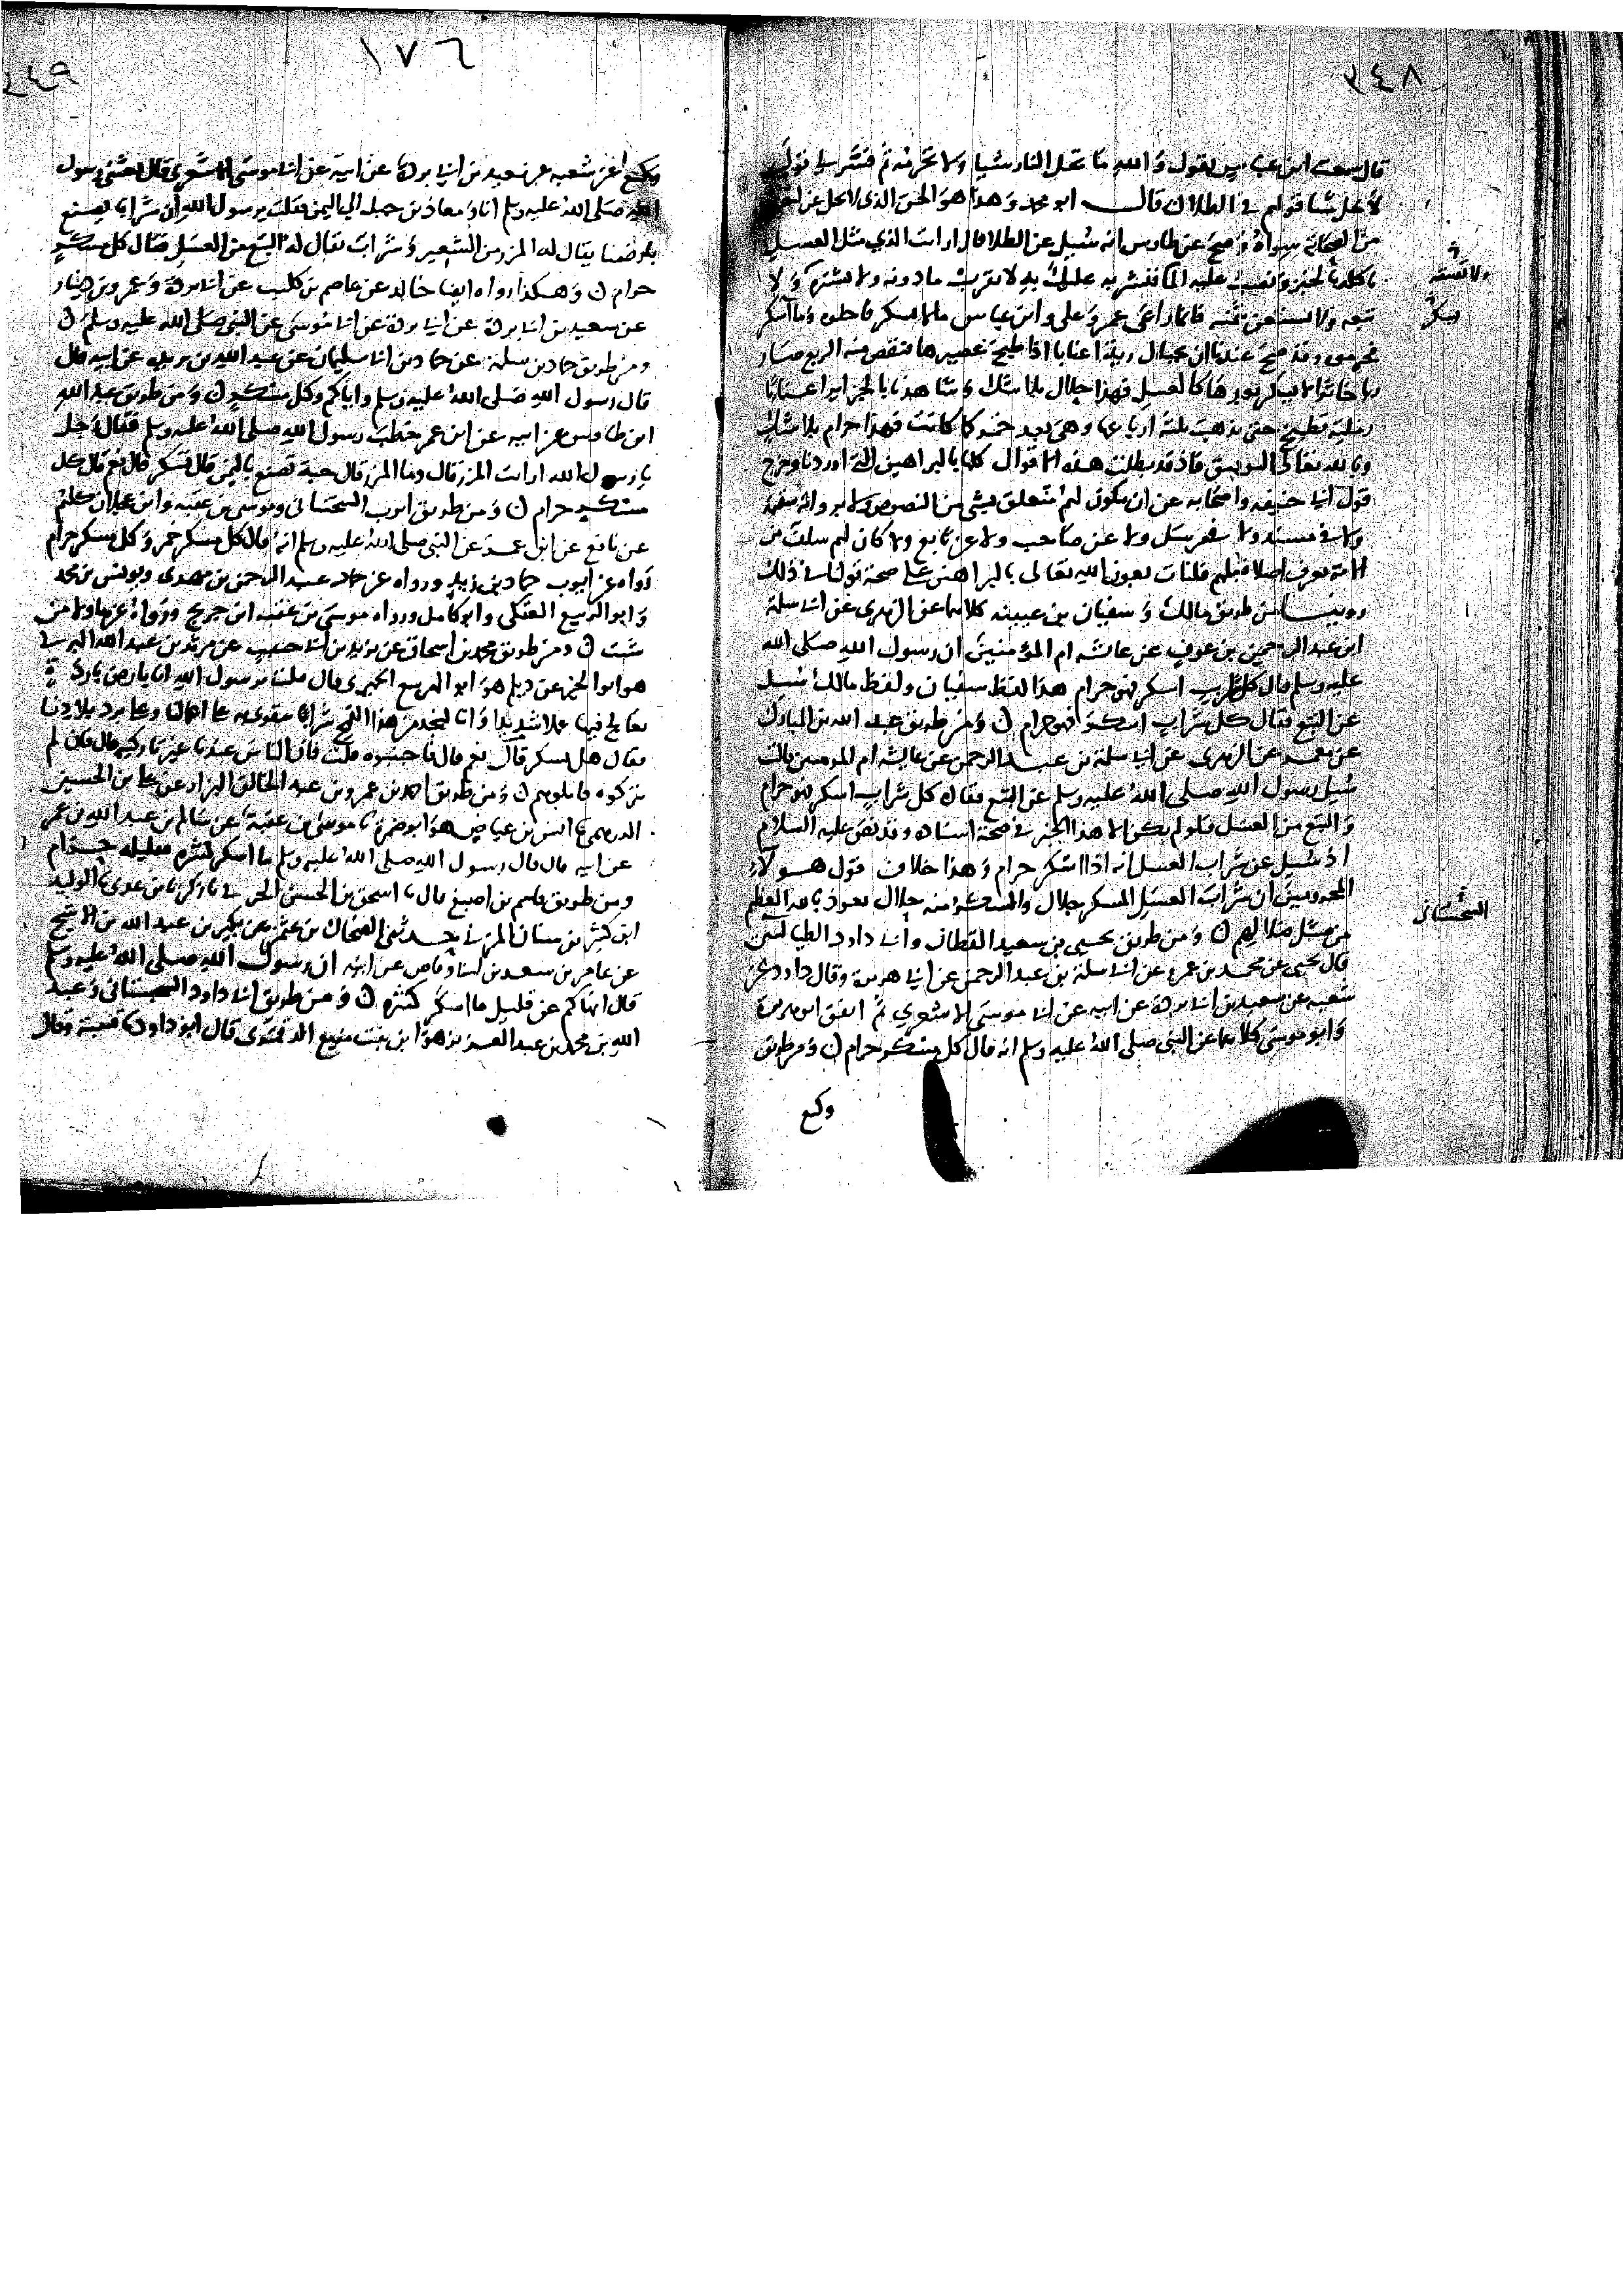 ٢٤٨
قال سمعت ابن عباس يقول والله ما تحل النار شيا ولا تحرمه ثم فسر لي قوله
لا تحل شيا قولهم في الطلا ن قال ابو محمد وهذا هو الحق الذي لا يحل غيره
من الصحابة سواه وصح عن طاوس انه سيل عن الطلا فقال ارايت الذي مثل العسل
تاكله بالخبز وتصب عليه الما فتشربه عليك به لا تقرب ما دونه ولا تشتره ولا
تبعه ولا تستعن بثمنه فانما راعى عمر وعلي وابن عباس ما لا يسكر فاحلوه وما اسكر
ولا تسقه
يسكر
فحرموه وقد صح عندنا ان بجبال رية اعنابا اذا طبخ عصيرها فنقص منه الربع صار
ربا خاثرا لا يسكر بعدها كالعسل فهذا حلال بلا شك وشاهدنا بالجزاير اعنابا
رملية تطبخ حتى يذهب ثلثة ارباعها وهي بعد خمر كما كانت فهذا حرام بلا شك
وبالله تعالى التوفيق فاذ قد بطلت هذه الاقوال كلها بالبراهين التي اوردنا وخرج
قول ابي حنيفة واصحابه عن ان يكون لهم متعلق بشي من النصوص
ولا في مسند ولا في مرسل ولا عن صاحب ولا عن تابع ولا كان لهم سلف من
الامة يعرف اصلا قبلهم فلنات بعون الله تعالى بالبراهين على صحة قولنا في ذلك
روينا من طريق مالك وسفيان بن عيينة كلاهما عن الزهري عن ابي سلمة
ابن عبد الرحمن بن عوف عن عايشة ام المؤمنين ان رسول الله صلى الله
عليه وسلم قال كل شراب اسكر فهو حرام هذا لفظ سفيان ولفظ مالك سيل
عن البتع فقال كل شراب اسكر فهو حرام ن ومن طريق عبد الله بن المبارك
عن معمر عن الزهري عن ابي سلمة بن عبد الرحمن عن عايشة ام المومنين قالت
سيل رسول الله صلى الله عليه وسلم عن البتع فقال كل شراب اسكر فهو حرام
والبتع من العسل فلو لم يكن الا هذا الخبر في صحة اسناده وقد نص عليه السلام
اذ سيل عن شراب العسل انه اذا اسكر حرام وهذا خلاف قول هولاء
المحرومين ان شراب العسل المسكر حلال والسكر منه حلال نعوذ بالله العظيم
من مثل ضلالهم ن ومن طريق يحيى بن سعيد القطان وابي داود الطيالسي
السختياني
قال يحيى عن محمد بن عمرو عن ابي سلمة بن عبد الرحمن عن ابي هريرة وقال داود عن
شعبة عن سعيد بن ابي بردة عن ابيه عن ابي موسى الاشعري ثم اتفق ابو هريرة
وابو موسى كلاهما عن النبي صلى الله عليه وسلم انه قال كل مسكر حرام ن ومن طريق
وكيع
٢٤٩
١٧٦
وكيع عن شعبة عن سعيد بن ابي بردة عن ابيه عن ابي موسى الاشعري قال بعثني رسول
الله صلى الله عليه وسلم انا ومعاذ بن جبل الى اليمن فقلت يرسول الله ان شرابا يصنع
بارضنا يقال له المزر من الشعير وشراب يقال له البتع من العسل فقال كل مسكر
حرام ن وهكذا رواه ايضا خالد عن عاصم بن كليب عن ابي بردة وعمرو بن دينار
عن سعيد بن ابي بردة عن ابي بردة عن ابي موسى عن النبي صلى الله عليه وسلم ن
ومن طريق حماد بن سلمة عن حماد بن ابي سليمان عن عبد الله بن بريدة عن ابيه قال
قال رسول الله صلى الله عليه وسلم واياكم وكل مسكر ن ومن طريق عبد الله
ابن طاوس عن ابيه عن ابن عمر خطب رسول الله صلى الله عليه وسلم فقال رجل
يا رسول الله ارايت المزر قال وما المزر قال حبة تصنع باليمن قال تسكر قال نعم قال كل
مسكر حرام ن ومن طريق ايوب السختياني وموسى بن عقبة وابن عجلان كلهم
عن نافع عن ابن عمر عن النبي صلى الله عليه وسلم انه قال كل مسكر خمر وكل مسكر حرام
رواه عن ايوب حماد بن زيد ورواه عن حماد عبد الرحمن بن مهدي ويونس بن محمد
وابو الربيع العتكي وابو كامل ورواه عن موسى بن عقبة ابن جريج
ثبت ن ومن طريق محمد بن اسحاق عن يزيد بن ابي حبيب عن مرثد بن عبد الله اليزني
هو ابو الخير عن ديلم هو ابو الحميري قال قلنا يرسول الله انا بارض باردة
نعالج فيها عملا شديدا وانا نتخذ من هذا القمح شرابا نتقوى به على اعمالنا وعلى برد بلادنا
فقال هل يسكر قال نعم قال فاجتنبوه قلت فان الناس عندنا غير تاركيه قال فان لم
يتركوه فاقتلوهم ن ومن طريق احمد بن عمرو بن عبد الخالق البزار عن علي بن الحسين
الدرهمي نا انس بن عياض هو ابو ضمرة نا موسى بن عقبة عن سالم بن عبد الله بن عمر
عن ابيه قال قال رسول الله صلى الله عليه وسلم ما اسكر كثيره فقليله حرام
ومن طريق قاسم بن اصبغ قال نا اسحق بن الحسن الحربي نا زكريا بن عدي نا الوليد
ابن كثير بن سنان المزني حدثني الضحاك بن عثمن عن بكير بن عبد الله بن الاشج
عن عامر بن سعد بن ابي وقاص عن ابيه ان رسول الله صلى الله عليه وسلم
قال انهاكم عن قليل ما اسكر كثيره ن ومن طريق ابي داود السجستاني وعبد
الله بن محمد بن عبد العزيز هو ابن بنت منيع البغوي قال ابو داود نا قتيبة وقال